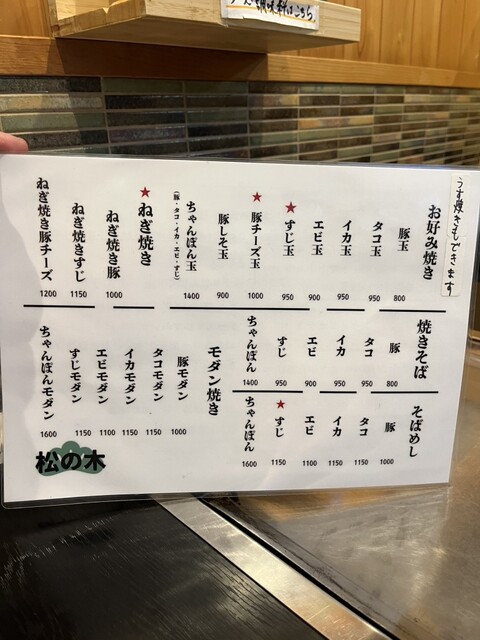 調味料はこちら。
うす焼きもできます
お好み焼き
豚玉 800
タコ玉 950
イカ玉 950
エビ玉 900
★すじ玉 950
★豚チーズ玉 1000
豚しそ玉 900
ちゃんぽん玉 1400
(豚・タコ・イカ・エビ・すじ)
★ねぎ焼き
ねぎ焼き豚 1000
ねぎ焼きすじ 1150
ねぎ焼き豚チーズ 1200
焼きそば
豚 800
タコ 950
イカ 950
エビ 900
すじ 950
ちゃんぽん 1400
そばめし
豚 1000
タコ 1150
イカ 1150
エビ 1100
★すじ 1150
ちゃんぽん 1600
モダン焼き
豚モダン 1000
タコモダン 1150
イカモダン 1150
エビモダン 1100
すじモダン 1150
ちゃんぽんモダン 1600
松の木